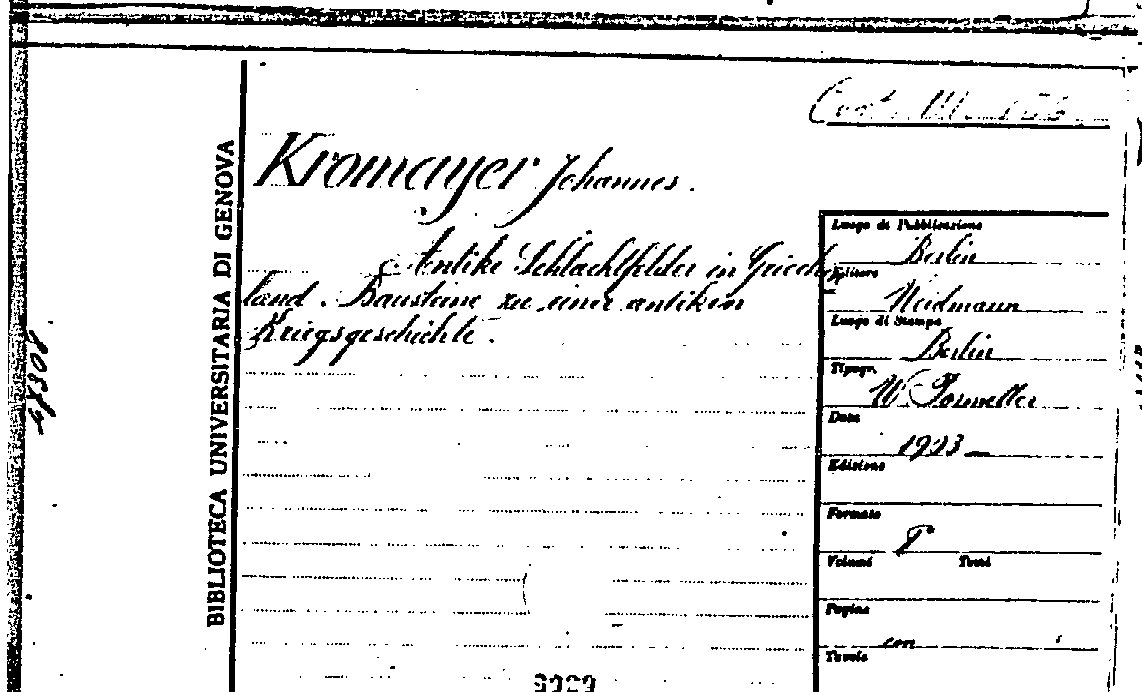 BIBLIOTECA UNIVERSITARIA DI GENOVA
Kromayer Johannes.
Antike Schlachtfelder in Griech
land. Bausteine zu einer antiken
Kriegsgeschichte.
Luogo di Pubblicazione
Berlin
Editore
Weidmann
Luogo di Stampa
Berlin
Tipogr.
W.
Data
1903 —
Edizione
Formato
8°
Volumi Tomi
Pagine
con
Tavole